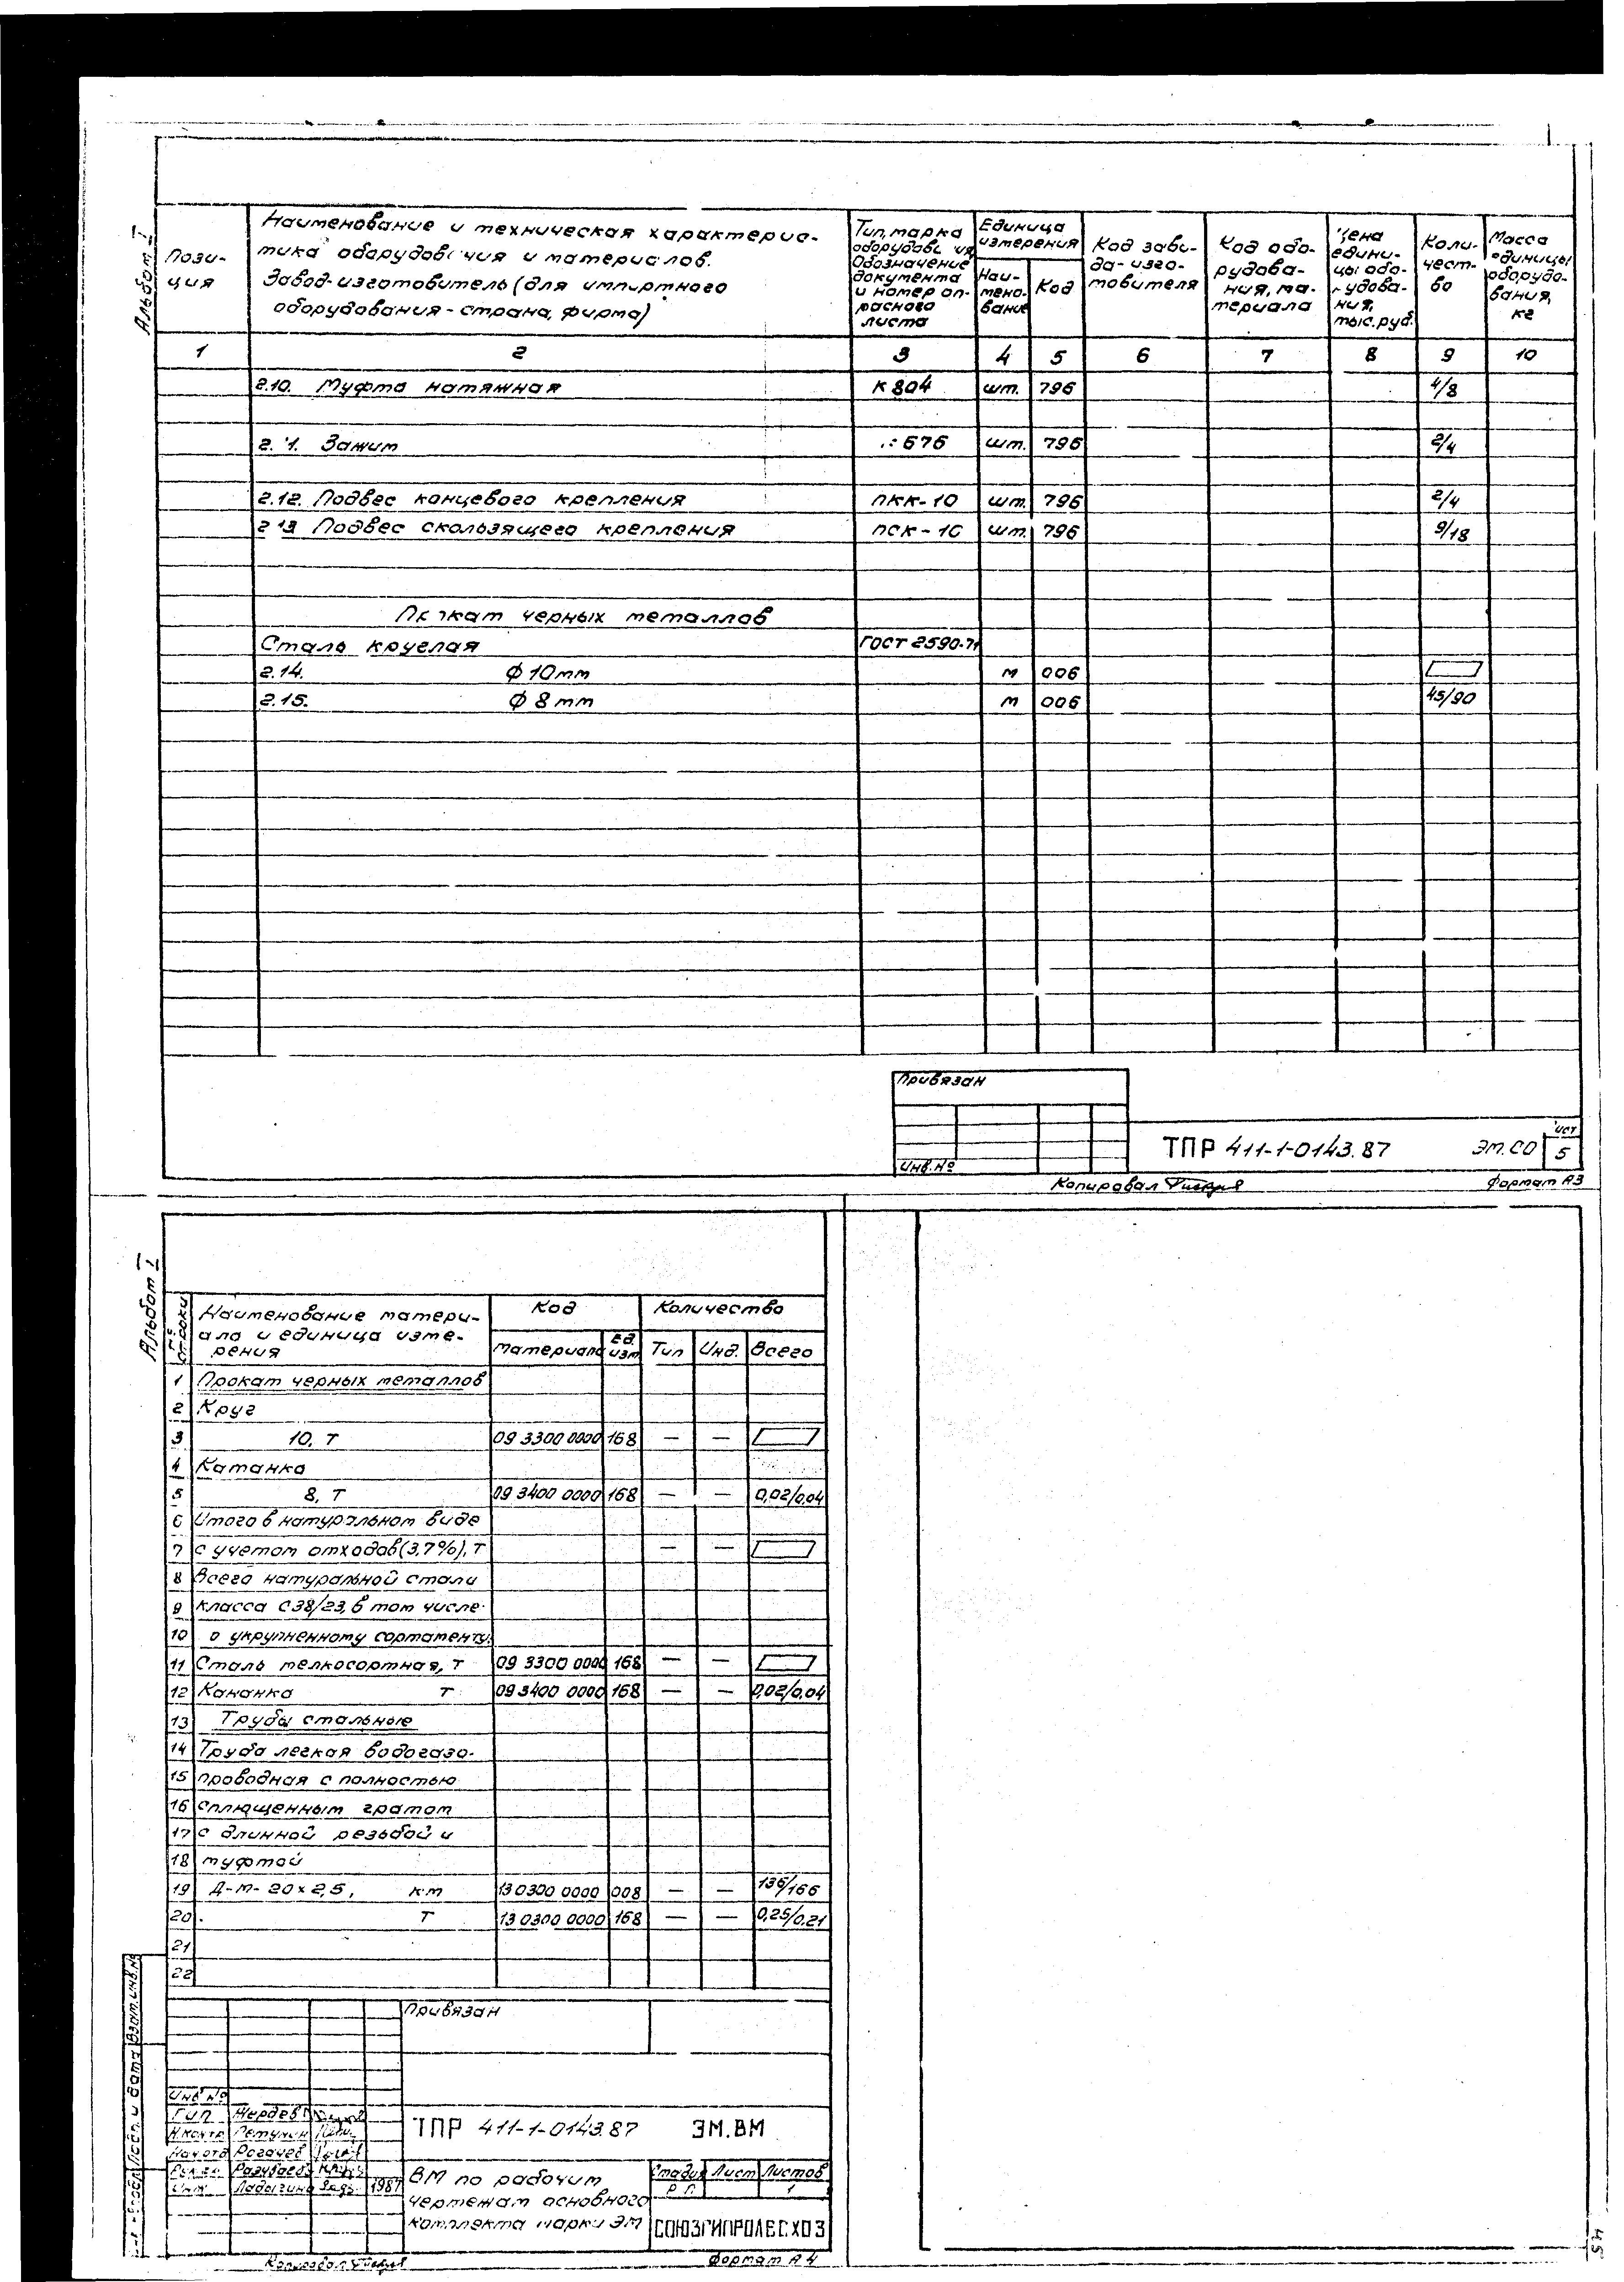 Альбом I
Позиция
Наименование и техническая характерис-
тика оборудования и материалов.
Завод-изготовитель (для импортного
оборудования-страна, фирма)
Тип, марка
оборудования
Обозначение
документа
и номер оп-
расного
листа
Единица
измерения
Наи-
мено-
вание
Код
Код заво-
да-изго-
товителя
Код обо-
рудова-
ния, ма-
териала
Цена
едини-
цы обо-
рудова-
ния,
тыс.руб.
Коли-
чест-
во
Масса
единицы
оборудо-
вания,
кг
1 2 3 4 5 6 7 8 9 10
2.10. Муфта натяжная К 804 шт. 796 4/8
Зажим 676 шт. 796 2/4
2.12. Подвес концевого крепления ПКК-10 шт. 796 2/4
2 13 Подвес скользящего крепления ПСК-10 шт. 796 9/18
Прокат черных металлов
Сталь круглая ГОСТ 2590-71
2.14. Ф 10мм м 006
2.15. Ф 8мм м 006 45/90
Привязан
Инв.№
ТПР 411-1-0143.87 ЭМ.СО
Лист
5
Копировал
Формат А3
Альбом I
№ строки
Наименование матери-
ала и единица изме-
рения
Код
Материала
Ед. изм
Количество
Тип Инд. Всего
1 Прокат черных металлов
2 Круг
3 10, т 09 3300 0000 168 — —
4 Катанка
5 8, т 09 3400 0000 168 — — 0,02/0,04
6 Итого в натуральном виде
7 с учетом отходов (3,7%), т — —
8 Всего натуральной стали
9 класса С38/23, в том числе
10 о укрупненному сортаменту:
11 Сталь мелкосортная, т 09 3300 0000 168 — —
12 Кананка т 09 3400 0000 168 — — 0,02/0,04
13 Трубы стальные
14 Труба легкая водогазо-
15 проводная с полностью
16 сплющенным гратом
17 с длинной резьбой и
18 муфтой
19 Д-М- 20×2,5, км 13 0300 0000 008 — — 136/166
20 т 13 0300 0000 168 — — 0,25/0,21
21
22
Привязан
Инв №
ГИП
Н.контр
Нач отд Рогачев
1987
ТПР 411-1-0143.87 ЭМ.ВМ
ВМ по рабочим
чертежам основного
комплекта марки ЭМ
Стадия Лист Листов
Р П 1
СОЮЗГИПРОЛЕСХОЗ
Взам.инв.№
Подп. и дата
Копировал
Формат А4